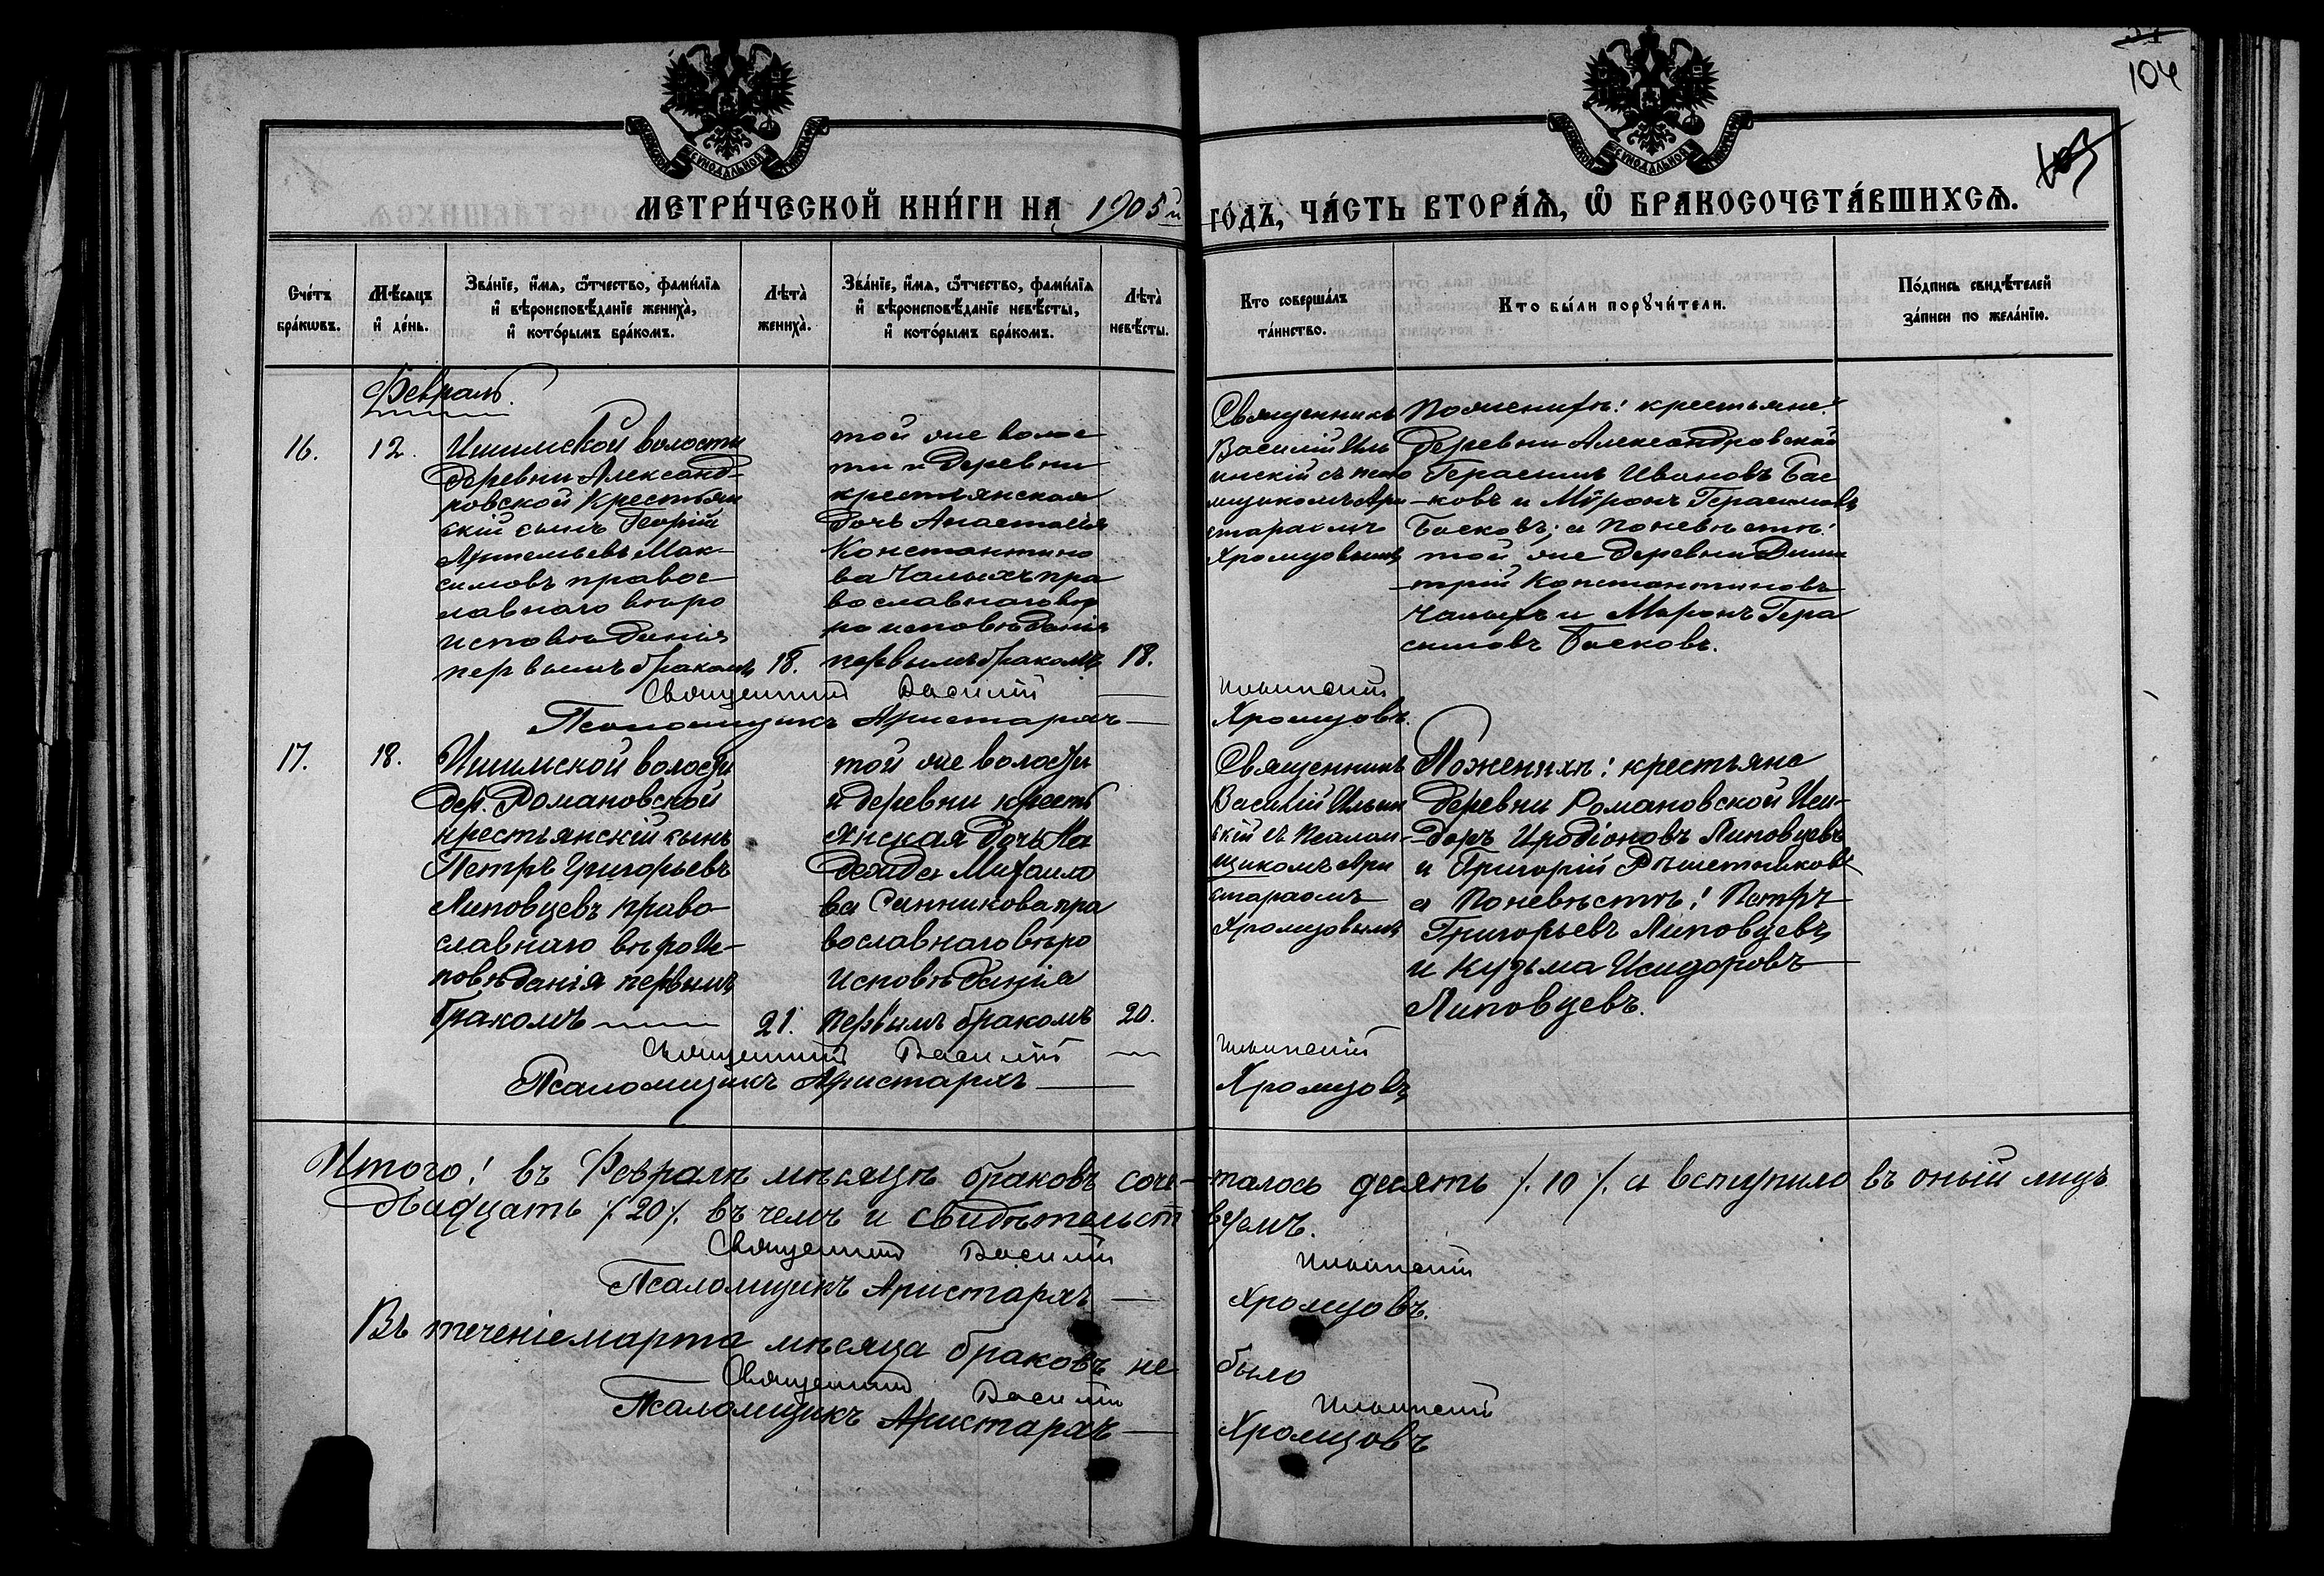 104
103
МЕТРИ́ЧЕСКОЙ КНИ́ГИ НА 1905й ГО́ДЪ, ЧА́СТЬ ВТОРА́Ѧ, Ѽ БРАКОСОЧЕТА́ВШИХСѦ.
Сче́тъ бра́кѡвъ.
Мѣ́сѧцъ и҆ де́нь.
Зва́нїе, и҆́мѧ, ѻ҆́тчество, фами́лїѧ
и҆ вѣроисповѣ́данїе жениха̀,
и҆ кото́рымъ бра́комъ.
Лѣта̀ жениха̀.
Зва́нїе, и҆́мѧ, ѻ҆́тчество, фами́лїѧ
и҆ вѣроисповѣ́данїе невѣ́сты,
и҆ кото́рымъ бра́комъ.
Лѣта̀ невѣ́сты.
Кто соверша́лъ
та́инство.
Кто бы́ли порꙋчи́тели.
По́дпись свидѣ́телей
за́писи по жела́нїю.
Февраль.
16.
12.
Ишимской волости
деревни Александ-
ровской Крестьян
скій сынъ Георгій
Артемьевъ Мак-
симовъ правос-
лавнаго вѣро
исповѣданія
первымъ бракомъ
18.
той же волос
ти и деревни
крестьянская
дочь Анастасія
Константино
ва Чалыхъ пра
вославнаго вѣр
но исповѣданія
первымъ бракомъ
18.
Священникъ
Василій Иль
инскій съ псало
мщикомъ Ари
стархомъ
Хромцовымъ
По женихѣ: крестьяне:
деревни Александровской
Герасимъ Ивановъ Бас
ковъ и Мѵронъ Герасимовъ
Басковъ; а по невѣстѣ:
той же деревни Дими
трій Константиновъ
Чалыхъ и Миронъ Гера
симовъ Басковъ.
Священникъ Василій Ильинскій
Псаломщикъ Аристархъ — Хромцовъ.
17.
18.
Ишимской волости
дер. Романовской
крестьянскій сынъ
Петръ Григорьевъ
Липовцевъ право
славнаго вѣро Ис-
повѣданія первымъ
бракомъ
21.
той же волости
и деревни кресть
янская дочь На
дежда Михаило
ва Санникова пра
вославнаго вѣро
исповѣданіа
первымъ бракомъ
20.
Священникъ
Василій Ильин
скій съ Псалом
щикомъ Ари
стархомъ
Хромцовымъ
По женихѣ: крестьяне
деревни Романовской Иси-
доръ Иродіоновъ Липовцевъ
и Григорій Рѣшетниковъ
а по невѣстѣ: Петръ
Григорьевъ Липовцевъ
и Кузьма Исидоровъ
Липовцевъ.
Священникъ Василій Ильинскій
Псаломщикъ Аристархъ — Хромцовъ
Итого: въ Февралѣ мѣсяцѣ браковъ соче-талось десять /. 10 /. а вступило въ оный лицъ
двадцать /. 20 /. въ чемъ и свидѣтельствуемъ.
Священникъ Василій Ильинскій
Псаломщикъ Аристархъ — Хромцовъ.
Въ теченіе марта мѣсяца браковъ не было
Священникъ Василій Ильинскій
Псаломщикъ Аристархъ — Хромцовъ